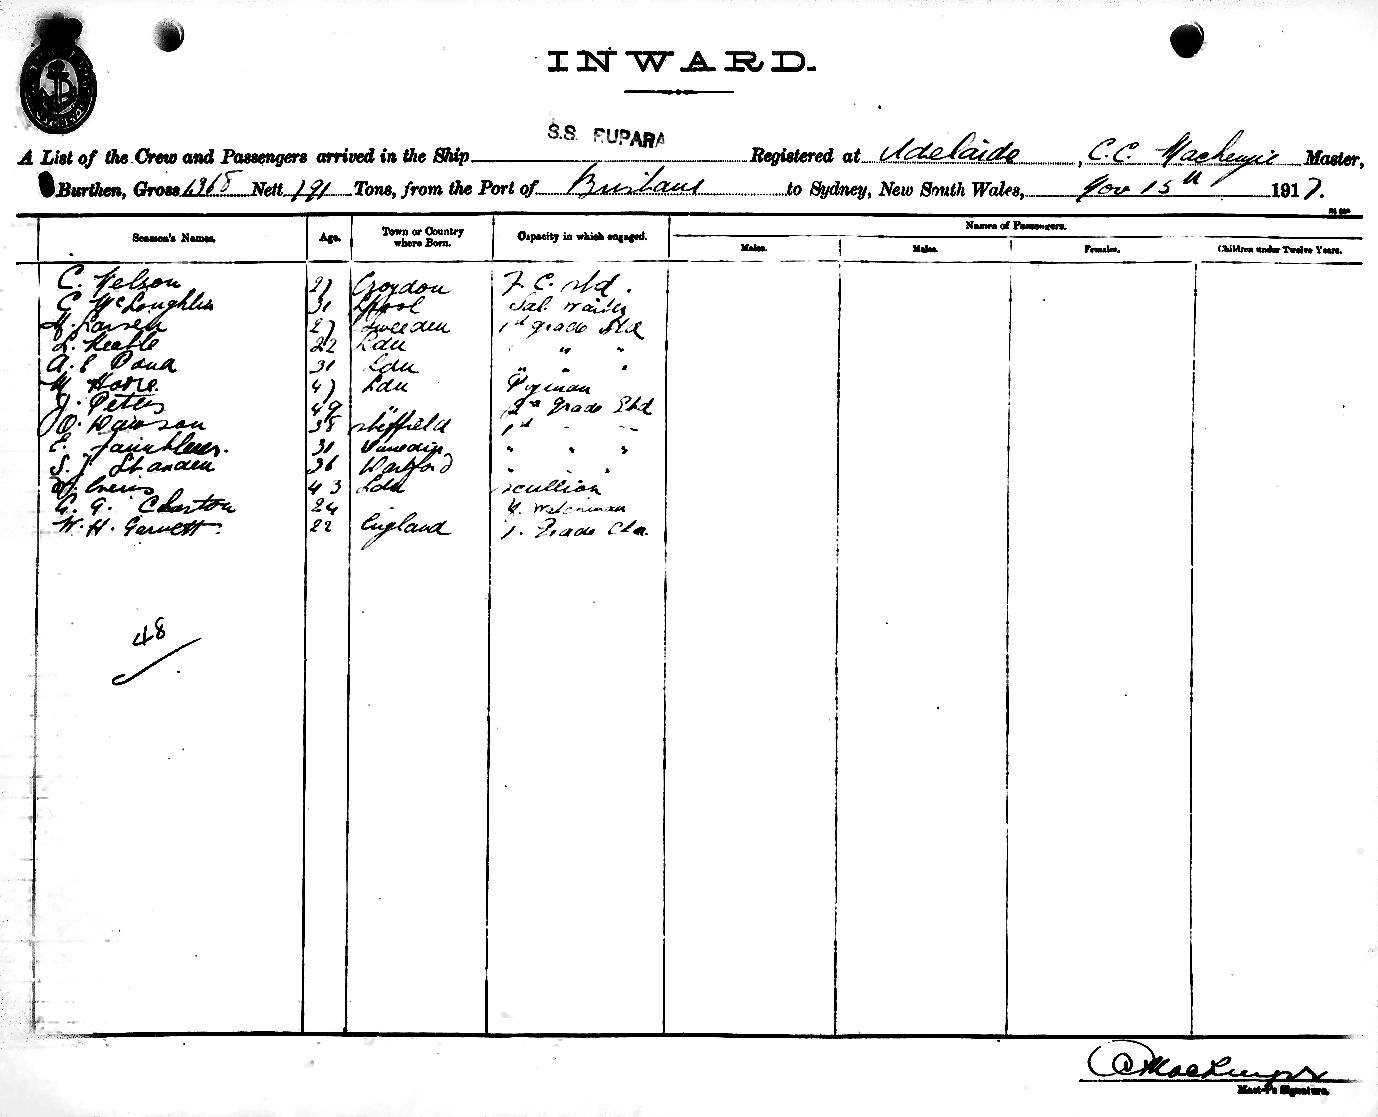 INWARD.
S.S. RUPARA
A List of the Crew and Passengers arrived in the Ship Registered at Adelaide, C.C. Mackenzie Master,
Burthen, Gross Nett 191 Tons, from the Port of Brisbane to Sydney, New South Wales, Nov 15th 1917.
Names of Passengers.
Seamen's Names. Age. Town or Country where Born. Capacity in which engaged. Males. Males. Females. Children under Twelve Years.
C. Nelson 27 Croydon F. C. Std.
C McLoughlin 31 Lpool Sal. Waiter
Larsen 27 Sweeden 1st grade Std
L. Keable 22 Ldn " "
A. E Bond 31 Ldn " " "
M Hoare 47 Ldn
J. Petters 49 " 2nd grade Std
O. Dawson 38 Sheffield 1st
E. 31 Dunedin " " "
S. J. Standen 36 " " "
43 Ldn Scullion
C. G. Charton 24
W. H. Garnett 22 England 1. Grade Clk.
48
C Mackenzie
Master's Signature.